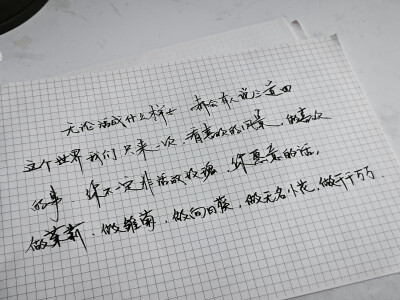 无论活成什么样子 都会有人说三道四
这个世界我们只来一次,看喜欢的风景,做喜欢
的事,你不一定非活成玫瑰,你愿意的话,
做茉莉,做雏菊,做向日葵,做无名小花,做千千万万